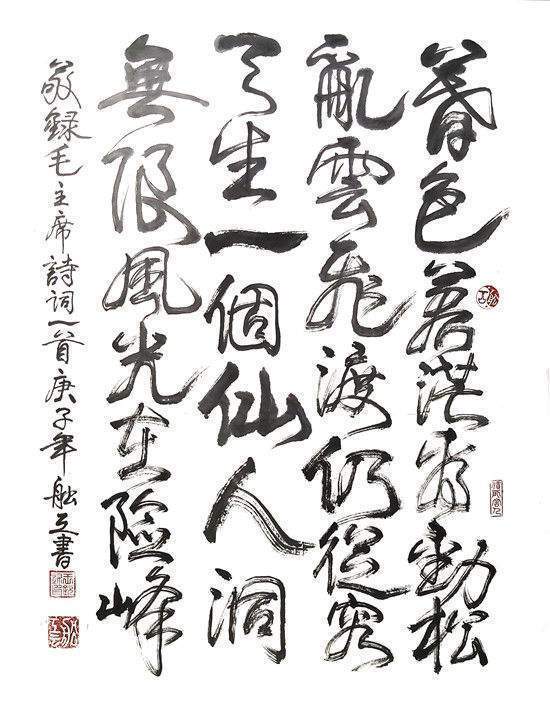 暮色蒼茫看勁松
亂雲飛渡仍從容
天生一個仙人洞
無限風光在險峰
敬録毛主席詩詞一首庚子年書